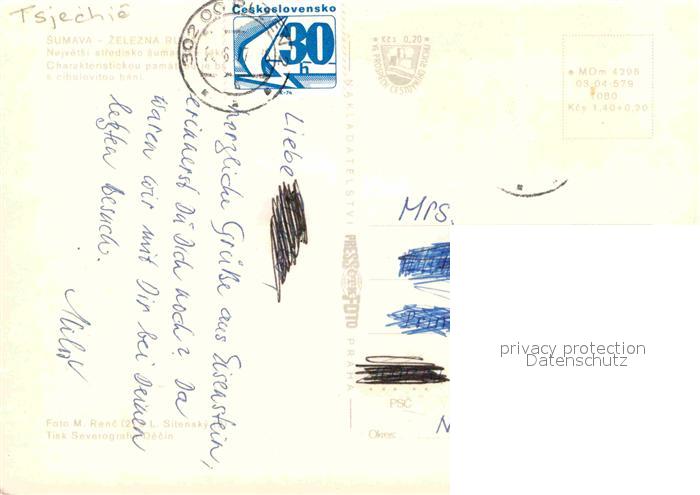 Tsjechië
ŠUMAVA - ŽELEZNA RU
Největší středisko šuma
Charakteristickou pamá je ba
s cibulovitou bání.
Československo
30
h
302 OO
Kčs 0,20
VE PROSPĚCH CESTOVNÍHO RUCHU
MDm 4296
03-04-579
1080
Kčs 1,40+0,20
Liebe
herzliche Grüße aus Eisenstein,
erinnerst Du Dich noch? Da
waren wir mit Dir bei Deinem
letzten Besuch.
Miloš
NAKLADATELSTVÍ
PRESSFOTO
PRAHA
Mrs.
PSČ
Okres:
N
Foto M. Renč (2), L. Sitenský
Tisk Severografie Děčín
privacy protection
Datenschutz